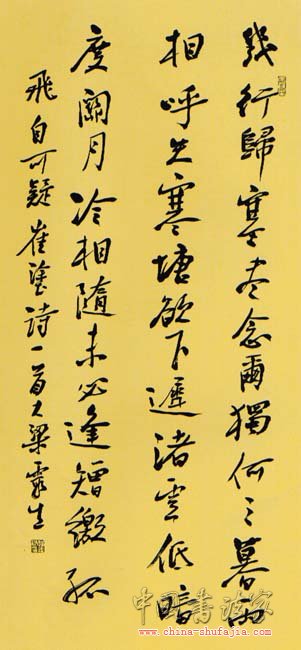 幾行歸塞盡念爾獨何之暮雨
相呼失寒塘欲下遲渚雲低暗
度關月冷相隨未必逢矰繳孤
飛自可疑 崔塗詩一首大梁生
中国書法家
www.china-shufajia.com